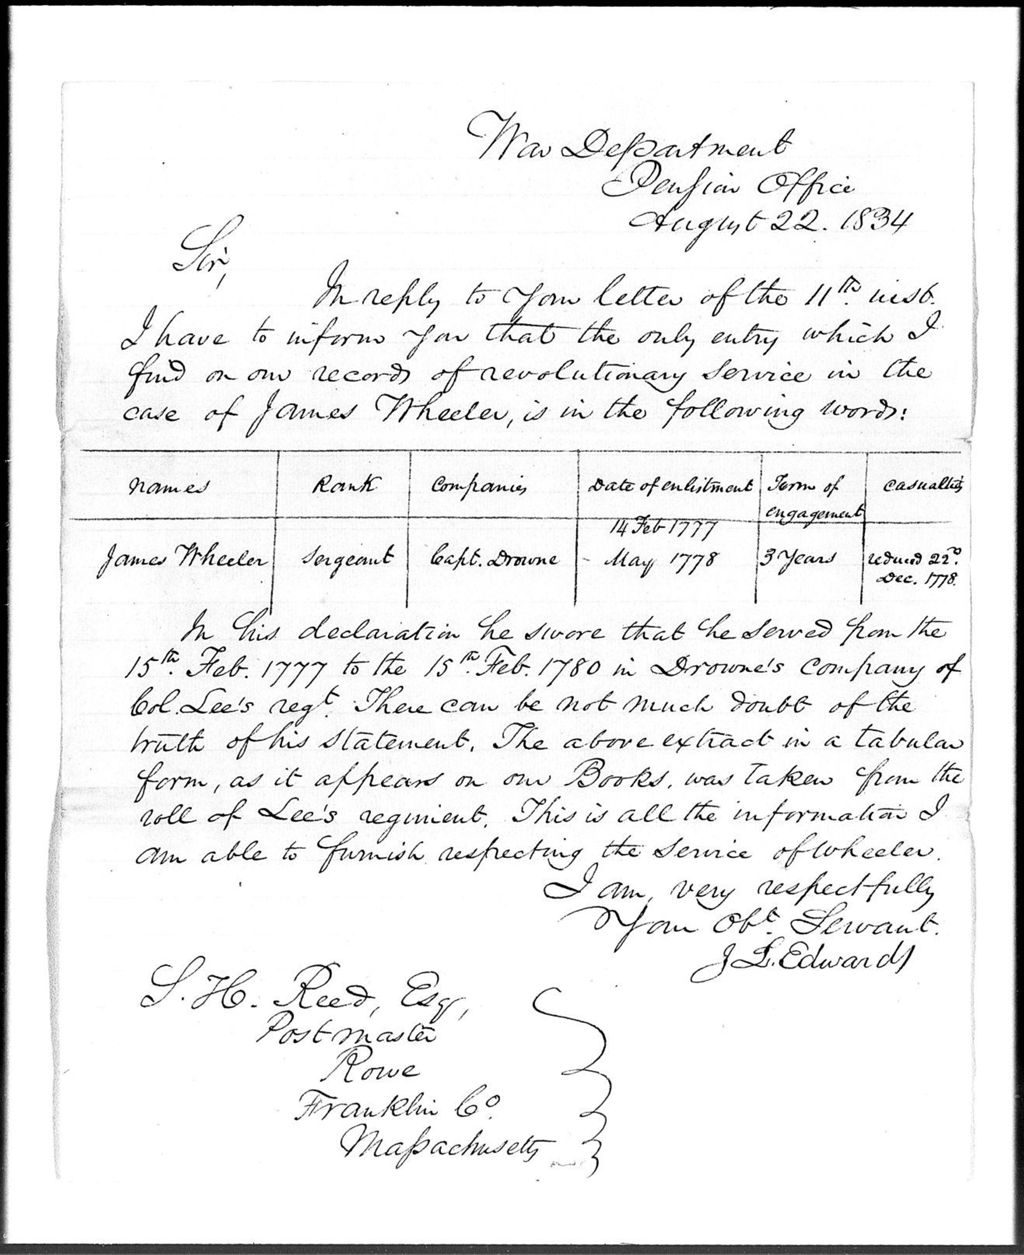 War Department
Pension Office
August 22. 1834
Sir,
In reply to your letter of the 11th. inst.
I have to inform you that the only entry which I
find on our records of revolutionary service in the
case of James Wheeler, is in the following words:
Names Rank Companies Date of enlistment Term of engagement Casualties
James Wheeler Sergeant Capt. Drowne 14 Feb 1777 - May 1778 3 Years reduced 22d. Dec. 1778.
In his declaration he swore that he served from the
15th. Feb. 1777 to the 15th. Feb. 1780 in Drowne's company of
Col. Lee's regt. There can be not much doubt of the
truth of his statement. The above extract in a tabular
form, as it appears on our Books, was taken from the
roll of Lee's regiment. This is all the information I
am able to furnish respecting the service of Wheeler.
I am, very respectfully
Your Obt. Servant.
J L. Edwards
S. H. Reed, Esqr,
Postmaster
Rowe
Franklin Co.
Massachusetts